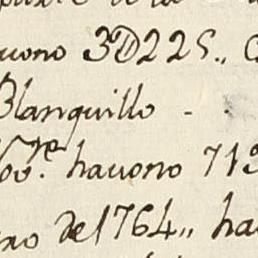 uono 3D225.,
Blanquillo -
Nov.re hauono 713
ero de 1764,, ha